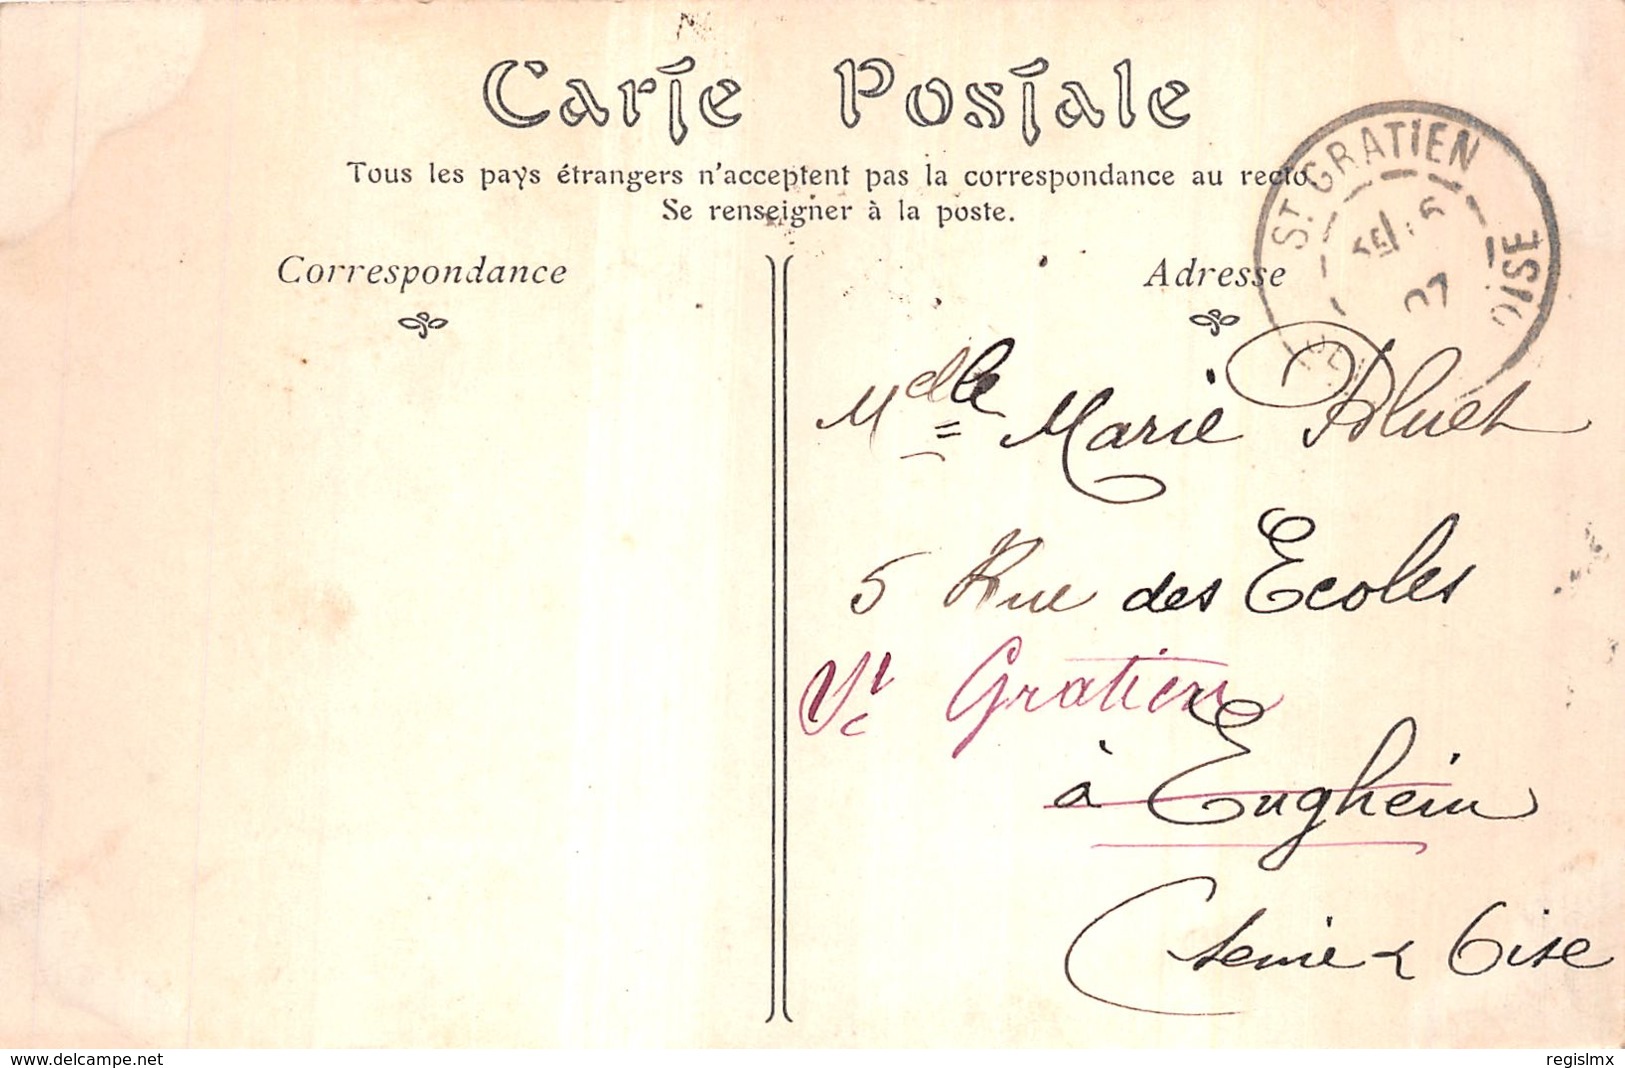 Carte Postale
Tous les pays étrangers n'acceptent pas la correspondance au recto
Se renseigner à la poste.
Correspondance
Adresse
ST GRATIEN
OISE
07
Melle Marie
5 Rue des Ecoles
St Gratien
à Enghein
(Seine & Oise
www.delcampe.net
regislmx